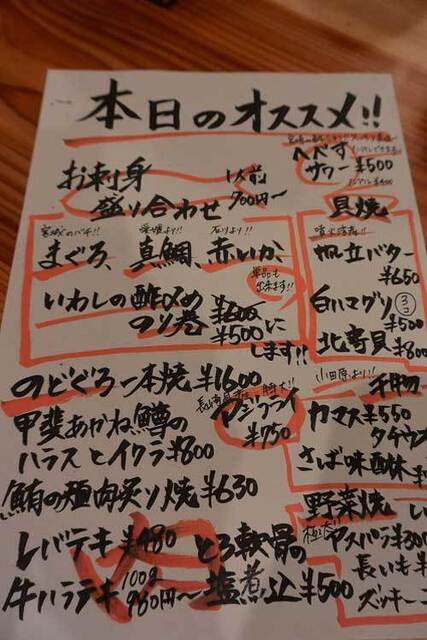 本日のオススメ!!
へべす
サワー ¥500
お刺身 1人前
盛り合わせ 900円〜
まぐろ、真鯛、赤いか
愛媛より!!
石川より!!
単品も
出来ます!!
いわしの酢〆め
のり巻 ¥600
¥500に
します!!
貝焼
噴火湾産!!
帆立バター
¥650
白ハマグリ 3コ
¥500
北寄貝 ¥800
のどぐろ一本焼 ¥1600
甲斐あかね鱒の
ハラスとイクラ ¥800
アジフライ
¥750
小田原より!! 干物
カマス ¥550
タチウ
さば味醂
鮪の頬肉炙り焼 ¥630
野菜焼
アスパラ ¥300
長いも
ズッキーニ
レバテキ ¥480
牛ハラテキ 100g
980円〜
とろ軟骨の
塩煮込 ¥500